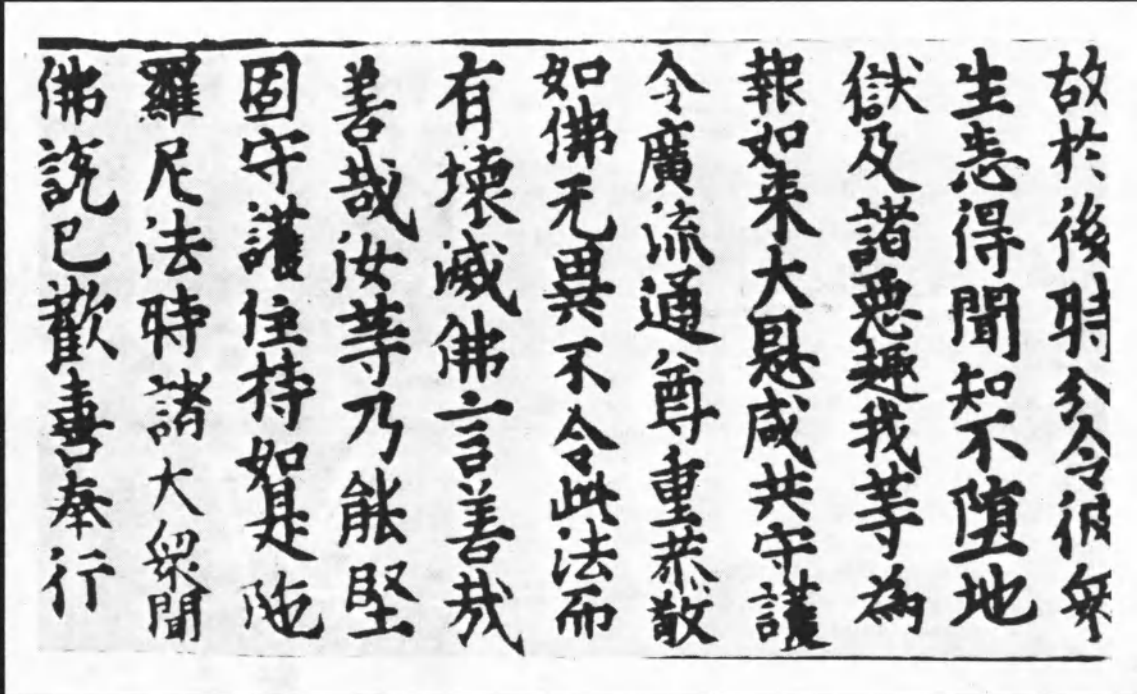 故於後時分令彼衆
生悉得聞知不墮地
獄及諸惡趣我等為
報如來大恩咸共守護
令廣流通尊重恭敬
如佛无異不令此法而
有壞滅佛言善哉
善哉汝等乃能堅
固守護住持如是陁
羅尼法時諸大衆聞
佛說已歡喜奉行